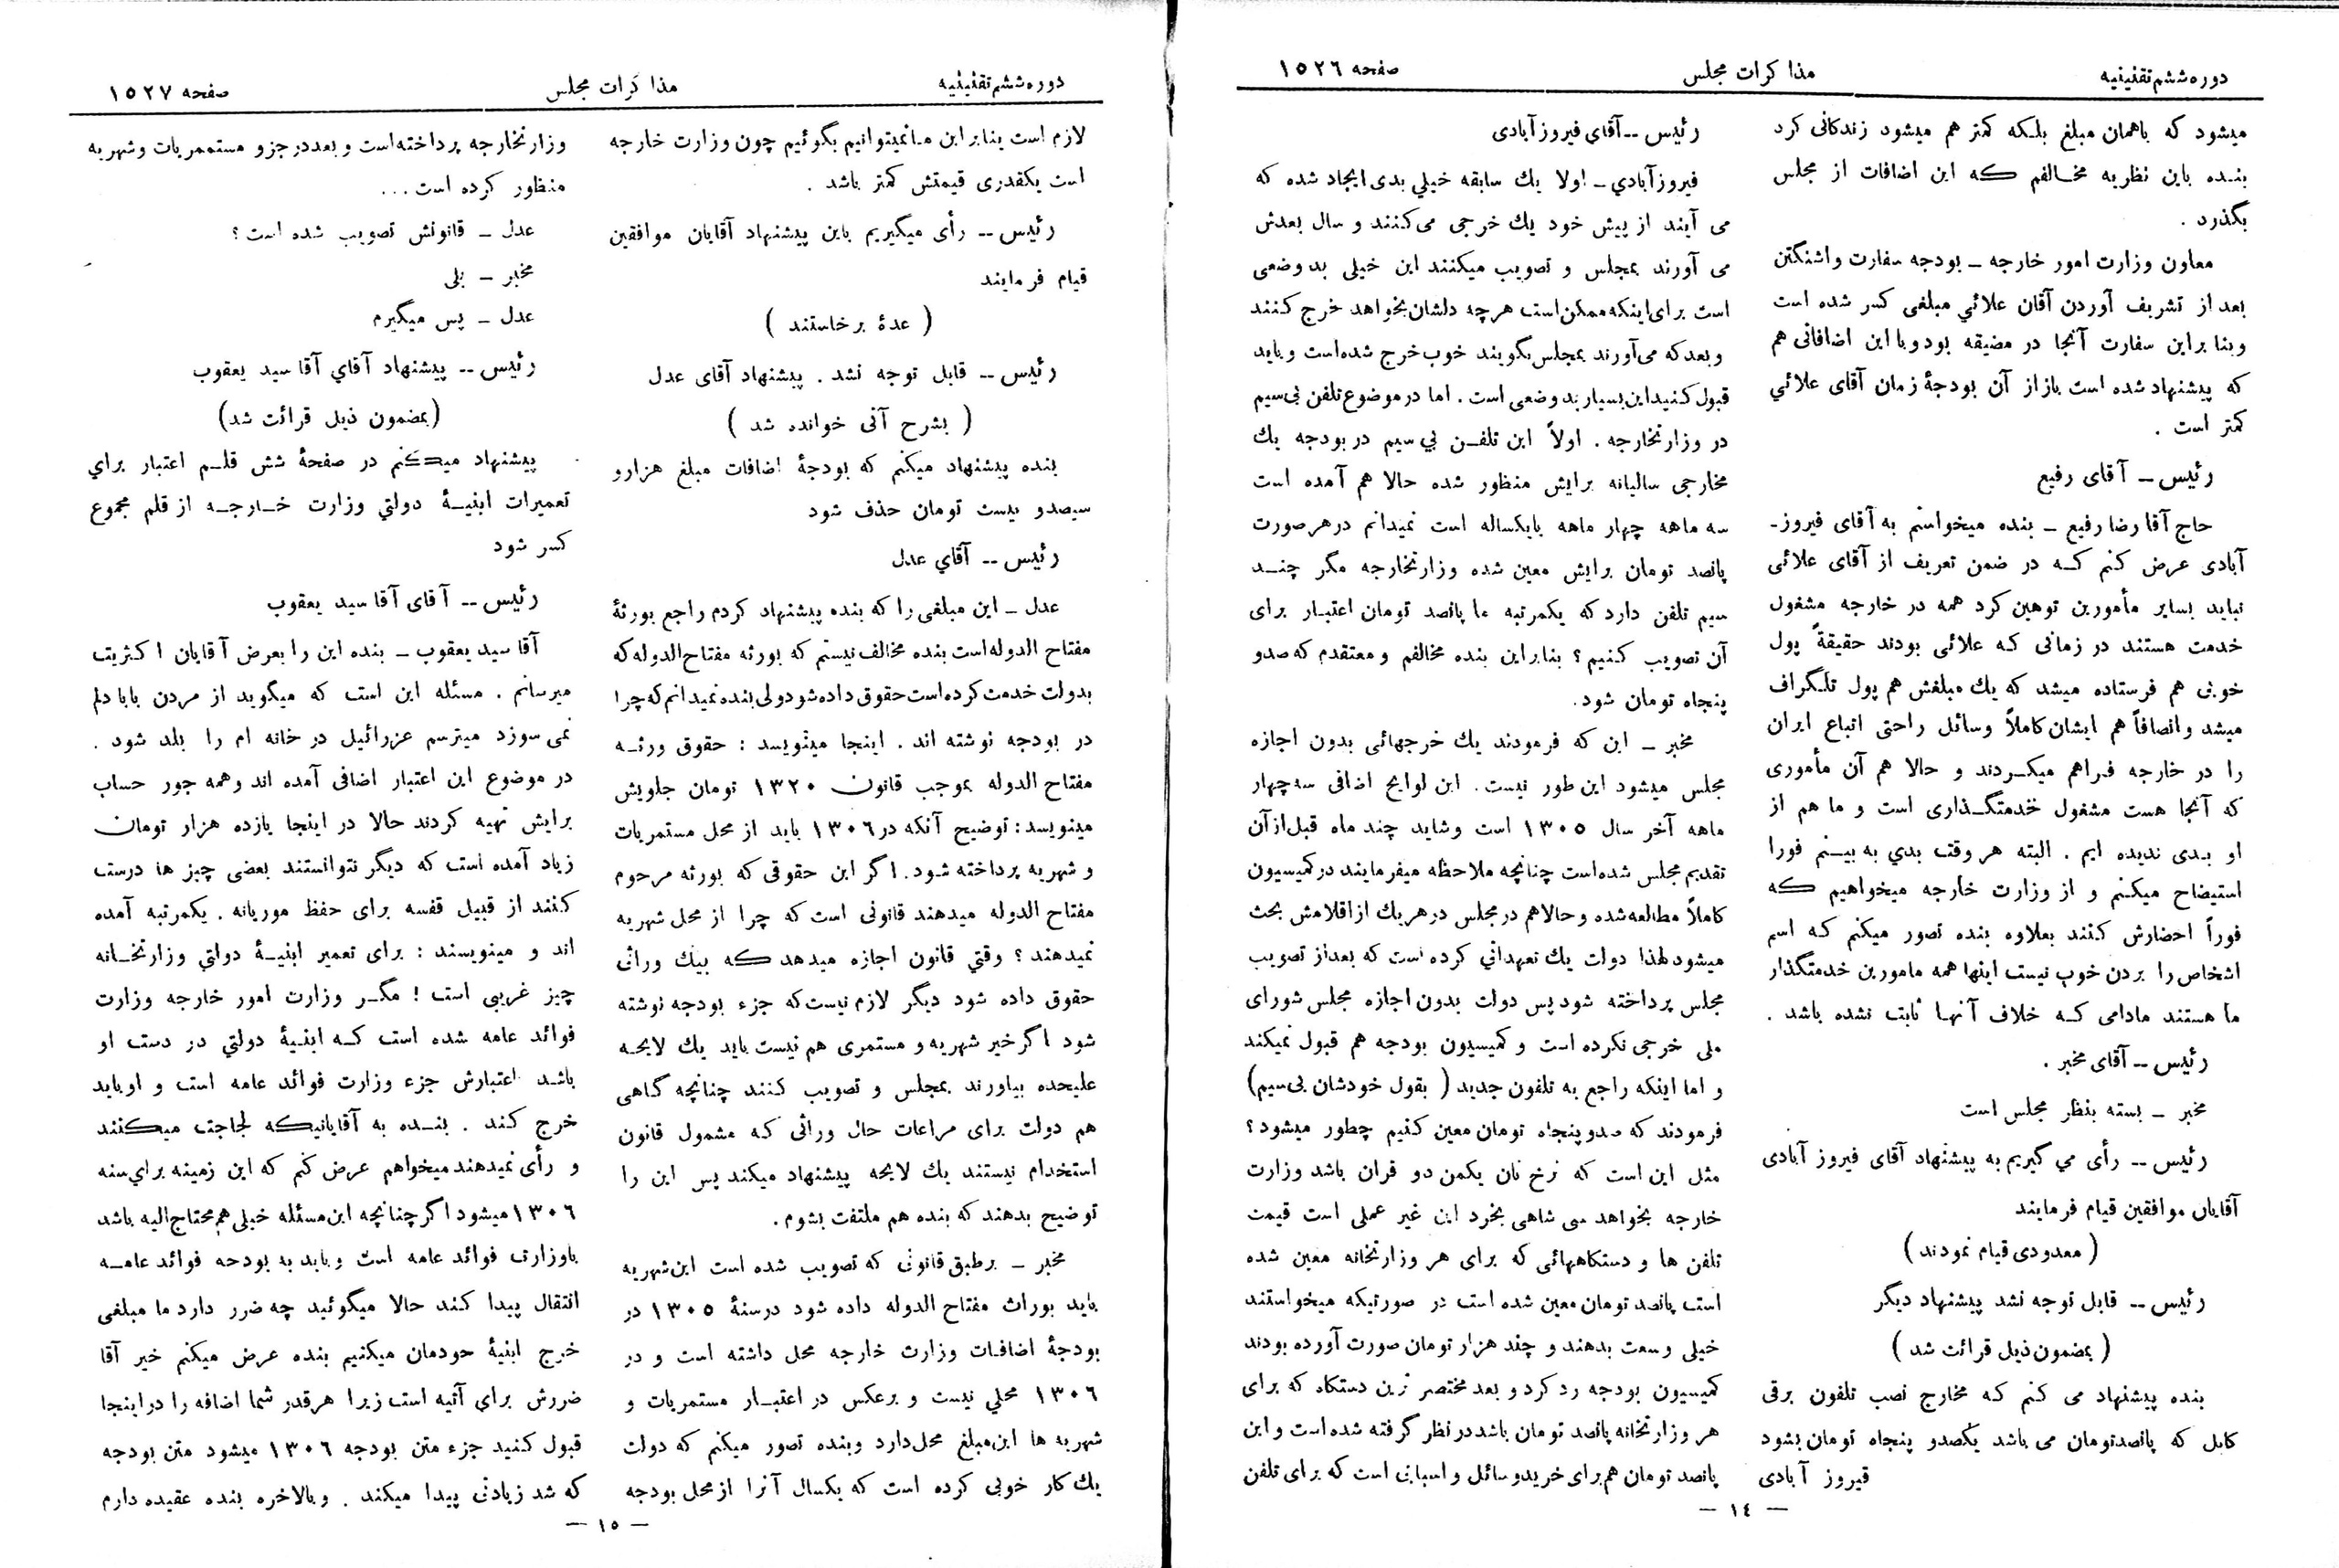 دوره ششم تقنینیه
مذاکرات مجلس
صفحه ١٥٢٦
میشود که باهمان مبلغ بلکه کمتر هم میشود زندگانی کرد
بنده باین نظریه مخالفم که این اضافات از مجلس
بگذرد .
معاون وزارت امور خارجه ـ بودجه سفارت واشنگتن
بعد از تشریف آوردن آقان علائی مبلغی کسر شده است
وبنا براین سفارت آنجا در مضیقه بود و با این اضافاتی هم
که پیشنهاد شده است باز از آن بودجهٔ زمان آقای علائی
کمتر است .
رئیس ـ آقای رفیع
حاج آقا رضا رفیع ـ بنده میخواستم به آقای فیروز-
آبادی عرض کنم که در ضمن تعریف از آقای علائی
نباید بسایر مأمورین توهین کرد همه در خارجه مشغول
خدمت هستند در زمانی که علائی بودند حقیقةً پول
خوبی هم فرستاده میشد که یك مبلغش هم پول تلگراف
میشد وانصافاً هم ایشان کاملاً وسائل راحتی اتباع ایران
را در خارجه فراهم میکردند و حالا هم آن مأموری
که آنجا هست مشغول خدمتگذاری است و ما هم از
او بدی ندیده ایم . البته هر وقت بدي به بینم فورا
استیضاح میکنم و از وزارت خارجه میخواهیم که
فوراً احضارش کنند بعلاوه بنده تصور میکنم که اسم
اشخاص را بردن خوب نیست اینها همه مامورین خدمتگذار
ما هستند مادامی که خلاف آنها ثابت نشده باشد .
رئیس ـ آقای مخبر .
مخبر ـ بسته بنظر مجلس است
رئیس -- رأی می گیریم به پیشنهاد آقای فیروز آبادی
آقایان موافقین قیام فرمایند
( معدودی قیام نمودند )
رئیس -- قابل توجه نشد پیشنهاد دیگر
( بمضمون ذیل قرائت شد )
بنده پیشنهاد می کنم که مخارج نصب تلفون برقی
کابل که پانصدتومان می باشد یکصدو پنجاه تومان بشود
فیروز آبادی
رئیس --آقای فیروزآبادی
فیروزآبادي ـ اولا یك سابقه خیلي بدی ایجاد شده که
می آیند از پیش خود یك خرجی می‌کنند و سال بعدش
می آورند بمجلس و تصویب میکنند این خیلی بد وضعی
است برای اینکه ممکن است هرچه دلشان بخواهد خرج کنند
و بعد که می‌آورند بمجلس بگویند خوب خرج شده است و باید
قبول کنید این بسیار بد وضعی است . اما در موضوع تلفن بی‌سیم
در وزارتخارجه . اولاً این تلفن بی سیم در بودجه یك
مخارجی سالیانه برایش منظور شده حالا هم آمده است
سه ماهه چهار ماهه یا یکساله است نمیدانم در هر صورت
پانصد تومان برایش معین شده وزارتخارجه مگر چند
سیم تلفن دارد که یکمرتبه ما پانصد تومان اعتبار برای
آن تصویب کنیم ؟ بنابراین بنده مخالفم و معتقدم که صدو
پنجاه تومان شود.
مخبر ـ این که فرمودند یك خرجهائی بدون اجازه
مجلس میشود این طور نیست . این لوایح اضافی سه چهار
ماهه آخر سال ١٣٠٥ است وشاید چند ماه قبل از آن
تقدیم مجلس شده است چنانچه ملاحظه میفرمایند در کمیسیون
کاملاً مطالعه شده و حالاهم در مجلس در هر یك از اقلامش بحث
میشود لهذا دولت یك تعهداتي کرده است که بعد از تصویب
مجلس پرداخته شود پس دولت بدون اجازه مجلس شورای
ملی خرجی نکرده است و کمیسیون بودجه هم قبول نمیکند
و اما اینکه راجع به تلفون جدید ( بقول خودشان بی‌سیم)
فرمودند که صدو پنجاه تومان معین کنیم چطور میشود ؟
مثل این است که نرخ نان یکمن دو قران باشد وزارت
خارجه بخواهد سی شاهی بخرد این غیر عملی است قیمت
تلفن ها و دستگاههائی که برای هر وزارتخانه معین شده
است پانصد تومان معین شده است در صورتیکه میخواستند
خیلی وسعت بدهند و چند هزار تومان صورت آورده بودند
کمیسیون بودجه رد کرد و بعد مختصر ترین دستگاه که برای
هر وزارتخانه پانصد تومان باشد در نظر گرفته شده است و این
پانصد تومان هم برای خرید وسائل و اسبابی است که برای تلفن
— ١٤ —
دوره ششم تقنینیه
مذاکرات مجلس
صفحه ١٥٢٧
لازم است بنابراین ما نمیتوانیم بگوئیم چون وزارت خارجه
است یکقدری قیمتش کمتر باشد .
رئیس -- رأی میگیریم باین پیشنهاد آقایان موافقین
قیام فرمایند
( عدهٔ برخاستند )
رئیس -- قابل توجه نشد . پیشنهاد آقای عدل
( بشرح آتی خوانده شد )
بنده پیشنهاد میکنم که بودجهٔ اضافات مبلغ هزارو
سیصدو بیست تومان حذف شود
رئیس -- آقاي عدل
عدل ـ این مبلغی را که بنده پیشنهاد کردم راجع بورثهٔ
مفتاح الدوله است بنده مخالف نیستم که بورثه مفتاح‌الدوله که
بدولت خدمت کرده است حقوق داده شود ولی بنده نمیدانم که چرا
در بودجه نوشته اند . اینجا مینویسد : حقوق ورثه
مفتاح الدوله بموجب قانون ١٣٢٠ تومان جلویش
مینویسد : توضیح آنکه در ١٣٠٦ باید از محل مستمریات
و شهریه پرداخته شود . اگر این حقوقی که بورثه مرحوم
مفتاح الدوله میدهند قانونی است که چرا از محل شهریه
نمیدهند ؟ وقتي قانون اجازه میدهد که بیك وراثی
حقوق داده شود دیگر لازم نیست که جزء بودجه نوشته
شود اگر خیر شهریه و مستمری هم نیست باید یك لایحه
علیحده بیاورند بمجلس و تصویب کنند چنانچه گاهی
هم دولت برای مراعات حال وراثی که مشمول قانون
استخدام نیستند یك لایحه پیشنهاد میکند پس این را
توضیح بدهند که بنده هم ملتفت بشوم .
مخبر ـ برطبق قانونی که تصویب شده است این شهریه
باید بوراث مفتاح الدوله داده شود درسنهٔ ١٣٠٥ در
بودجهٔ اضافات وزارت خارجه محل داشته است و در
١٣٠٦ محلي نیست و برعکس در اعتبار مستمریات و
شهریه ها این مبلغ محل دارد وبنده تصور میکنم که دولت
یك کار خوبی کرده است که یکسال آنرا از محل بودجه
وزارتخارجه پرداخته است و بعد درجزو مستمریات وشهریه
منظور کرده است ...
عدل ـ قانونش تصویب شده است ؟
مخبر ـ بلی
عدل ـ پس میگیرم
رئیس -- پیشنهاد آقاي آقا سید یعقوب
(بمضمون ذیل قرائت شد)
پیشنهاد میکنم در صفحهٔ شش قلم اعتبار براي
تعمیرات ابنیهٔ دولتي وزارت خارجه از قلم مجموع
کسر شود
رئیس -- آقای آقا سید یعقوب
آقا سید یعقوب ـ بنده این را بعرض آقایان اکثریت
میرسانم . مسئله این است که میگوید از مردن بابا دلم
نمی سوزد میترسم عزرائیل در خانه ام را بلد شود .
در موضوع این اعتبار اضافی آمده اند وهمه جور حساب
برایش تهیه کردند حالا در اینجا یازده هزار تومان
زیاد آمده است که دیگر نتوانستند بعضی چیز ها درست
کنند از قبیل قفسه برای حفظ موریانه . یکمرتبه آمده
اند و مینویسند : برای تعمیر ابنیهٔ دولتي وزارتخانه
چیز غریبی است ! مگر وزارت امور خارجه وزارت
فوائد عامه شده است که ابنیهٔ دولتي در دست او
باشد اعتبارش جزء وزارت فوائد عامه است و او باید
خرج کند . بنده به آقایانیکه لجاجت میکنند
و رأی نمیدهند میخواهم عرض کنم که این زمینه برای سنه
١٣٠٦ میشود اگر چنانچه این مسئله خیلی هم محتاج الیه باشد
باوزارت فوائد عامه است و باید به بودجه فوائد عامه
انتقال پیدا کند حالا میگوئید چه ضرر دارد ما مبلغی
خرج ابنیهٔ خودمان میکنیم بنده عرض میکنم خیر آقا
ضررش برای آتیه است زیرا هرقدر شما اضافه را دراینجا
قبول کنید جزء متن بودجه ١٣٠٦ میشود متن بودجه
که شد زیادتی پیدا میکند . وبالاخره بنده عقیده دارم
— ١٥ —